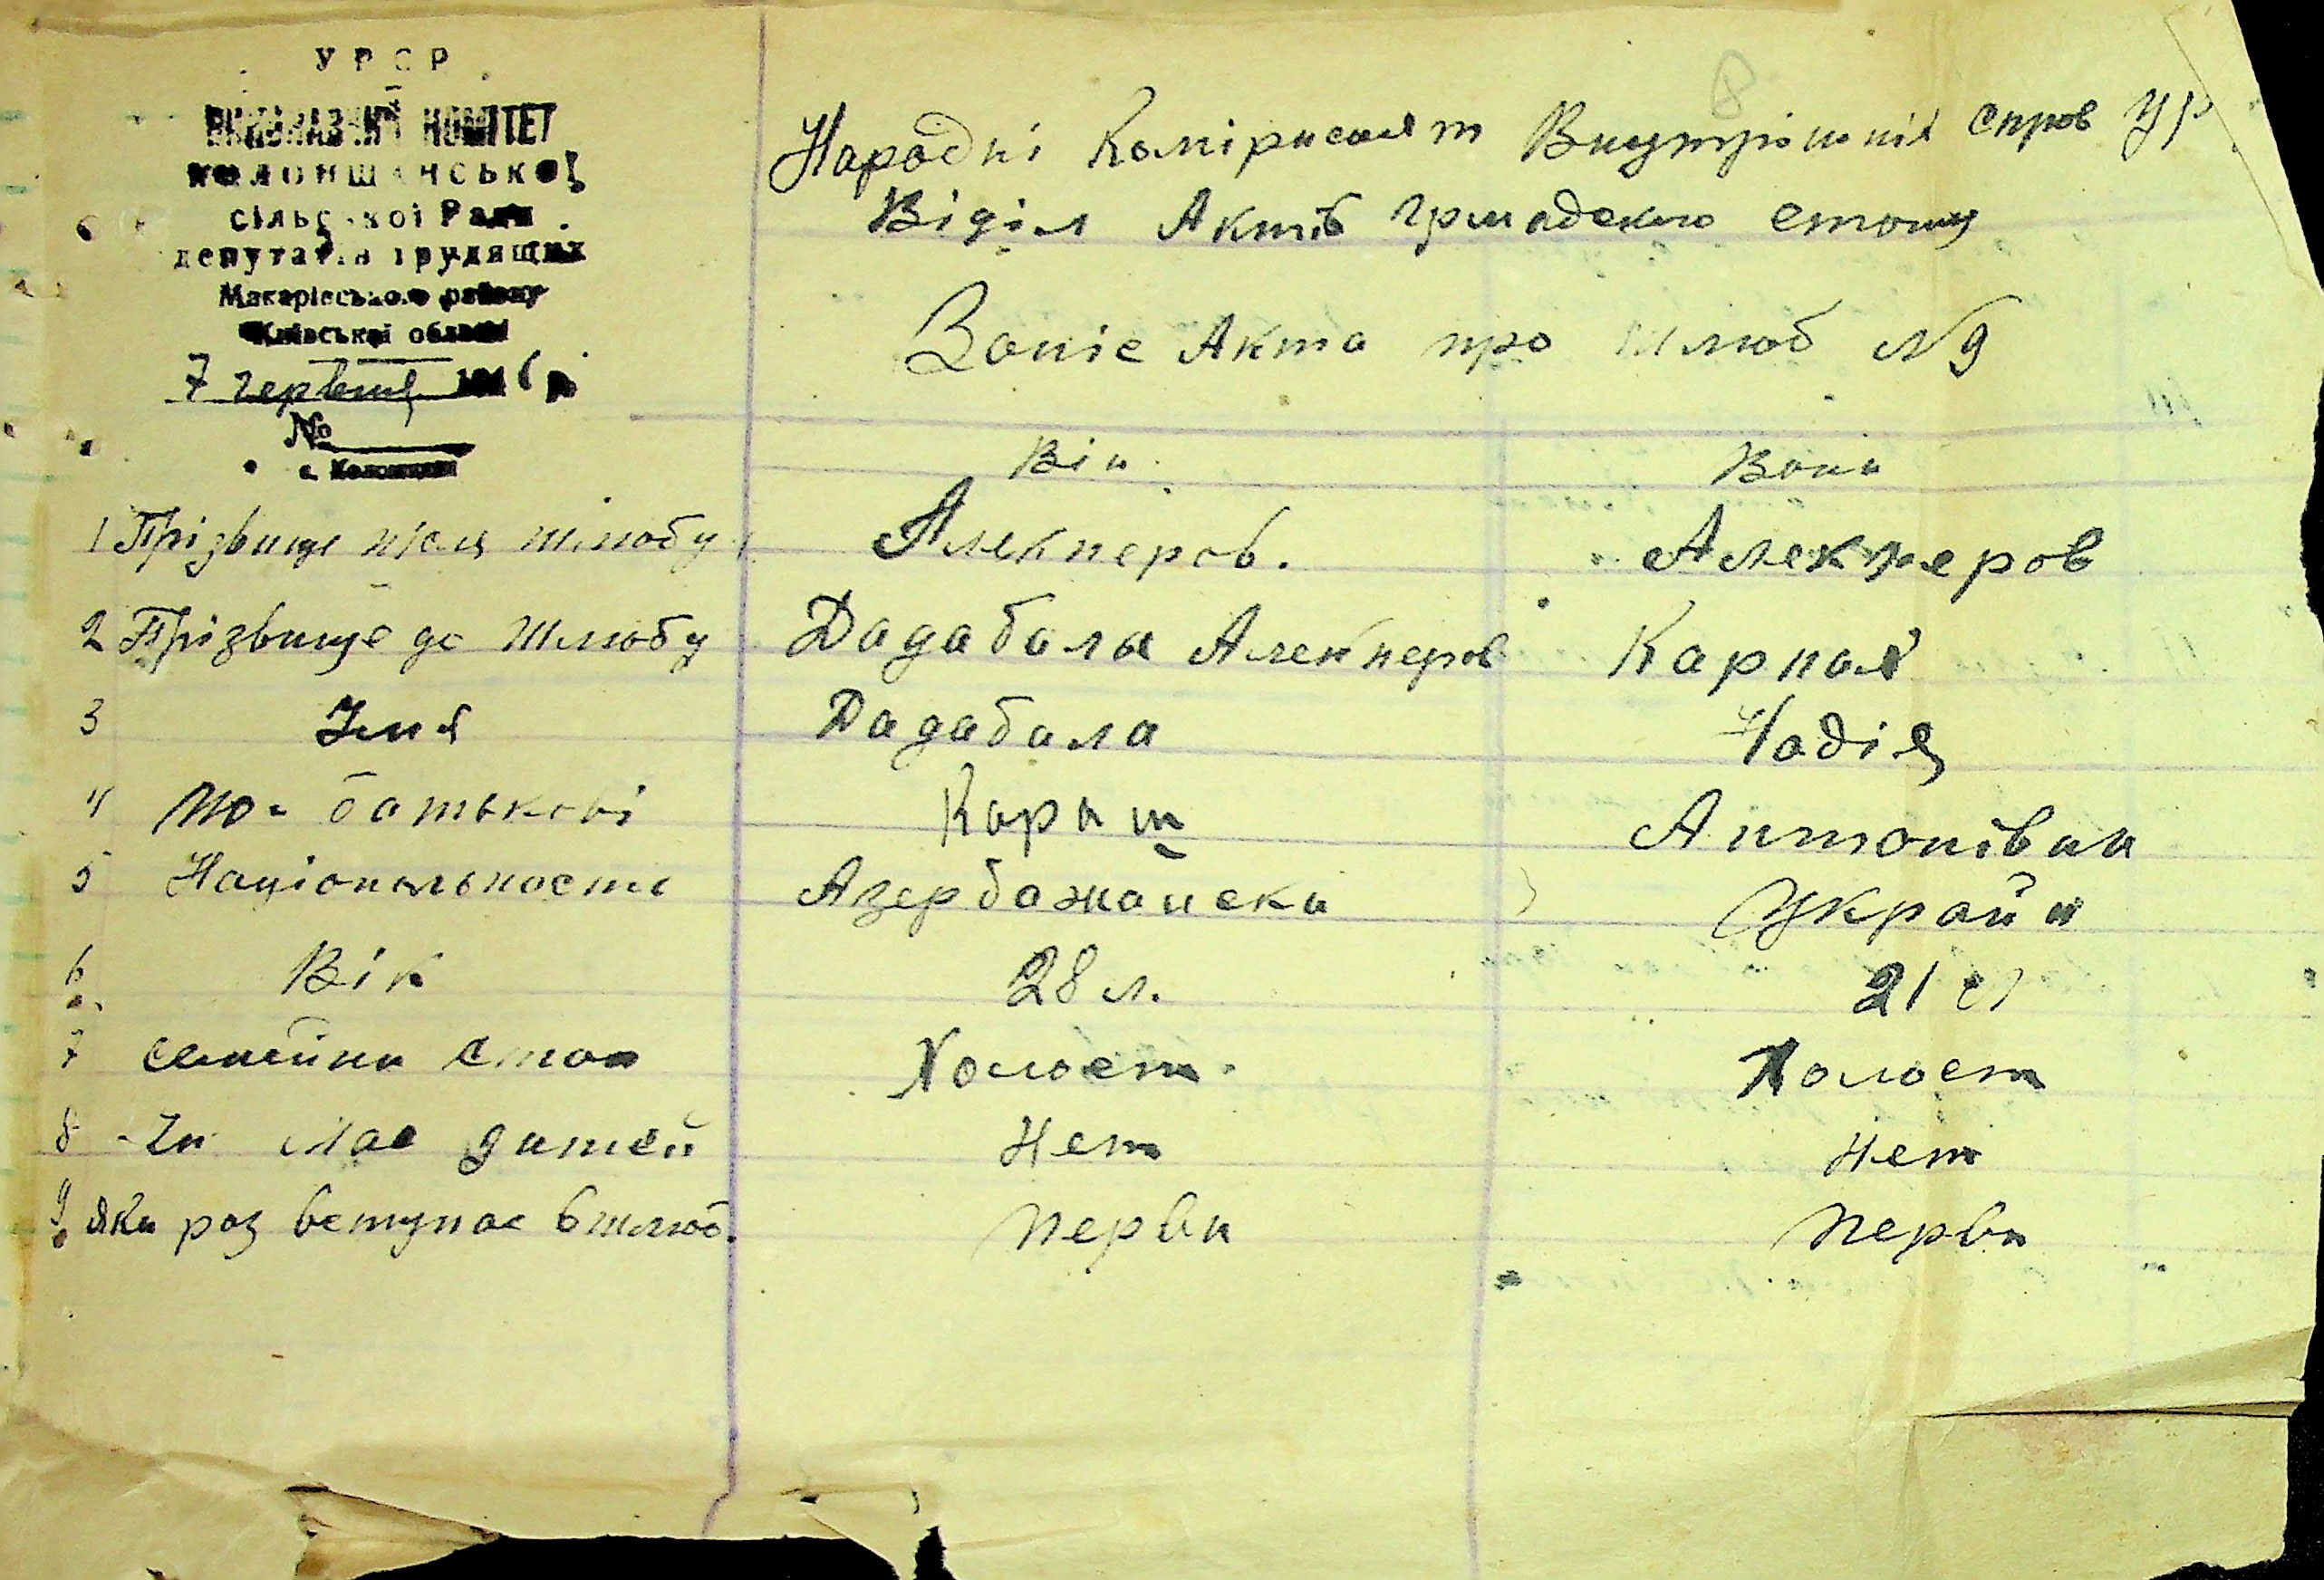 УРСР
ВИКОНАВЧИЙ КОМІТЕТ
КОЛОНЩИНСЬКОЇ
сільської Ради
депутатів трудящих
Макарівського району
Київської області
7 червня 1946 р.
№
с. Колонщина
8
Народні Комірисаят Внутрішніх справ УР
Відділ Актів громадского стану
Запіс Акта про шлюб N 9
Він Вона
1 Прізвище після шлюбу Алекперов. Алекперов
2 Прізвище до шлюбу Дадабала Алекперов Карпая
3 Імя Дадабала Надія
4 По-батькові Карыш Антонівна
5 Національность Азербажанска Украйн
6 Вік 28 л. 21 л
7 Семейни стан Холост. Холост
8 Чи має дитей Нет Нет
9 Яки раз вступає в шлюб. Перви Перви